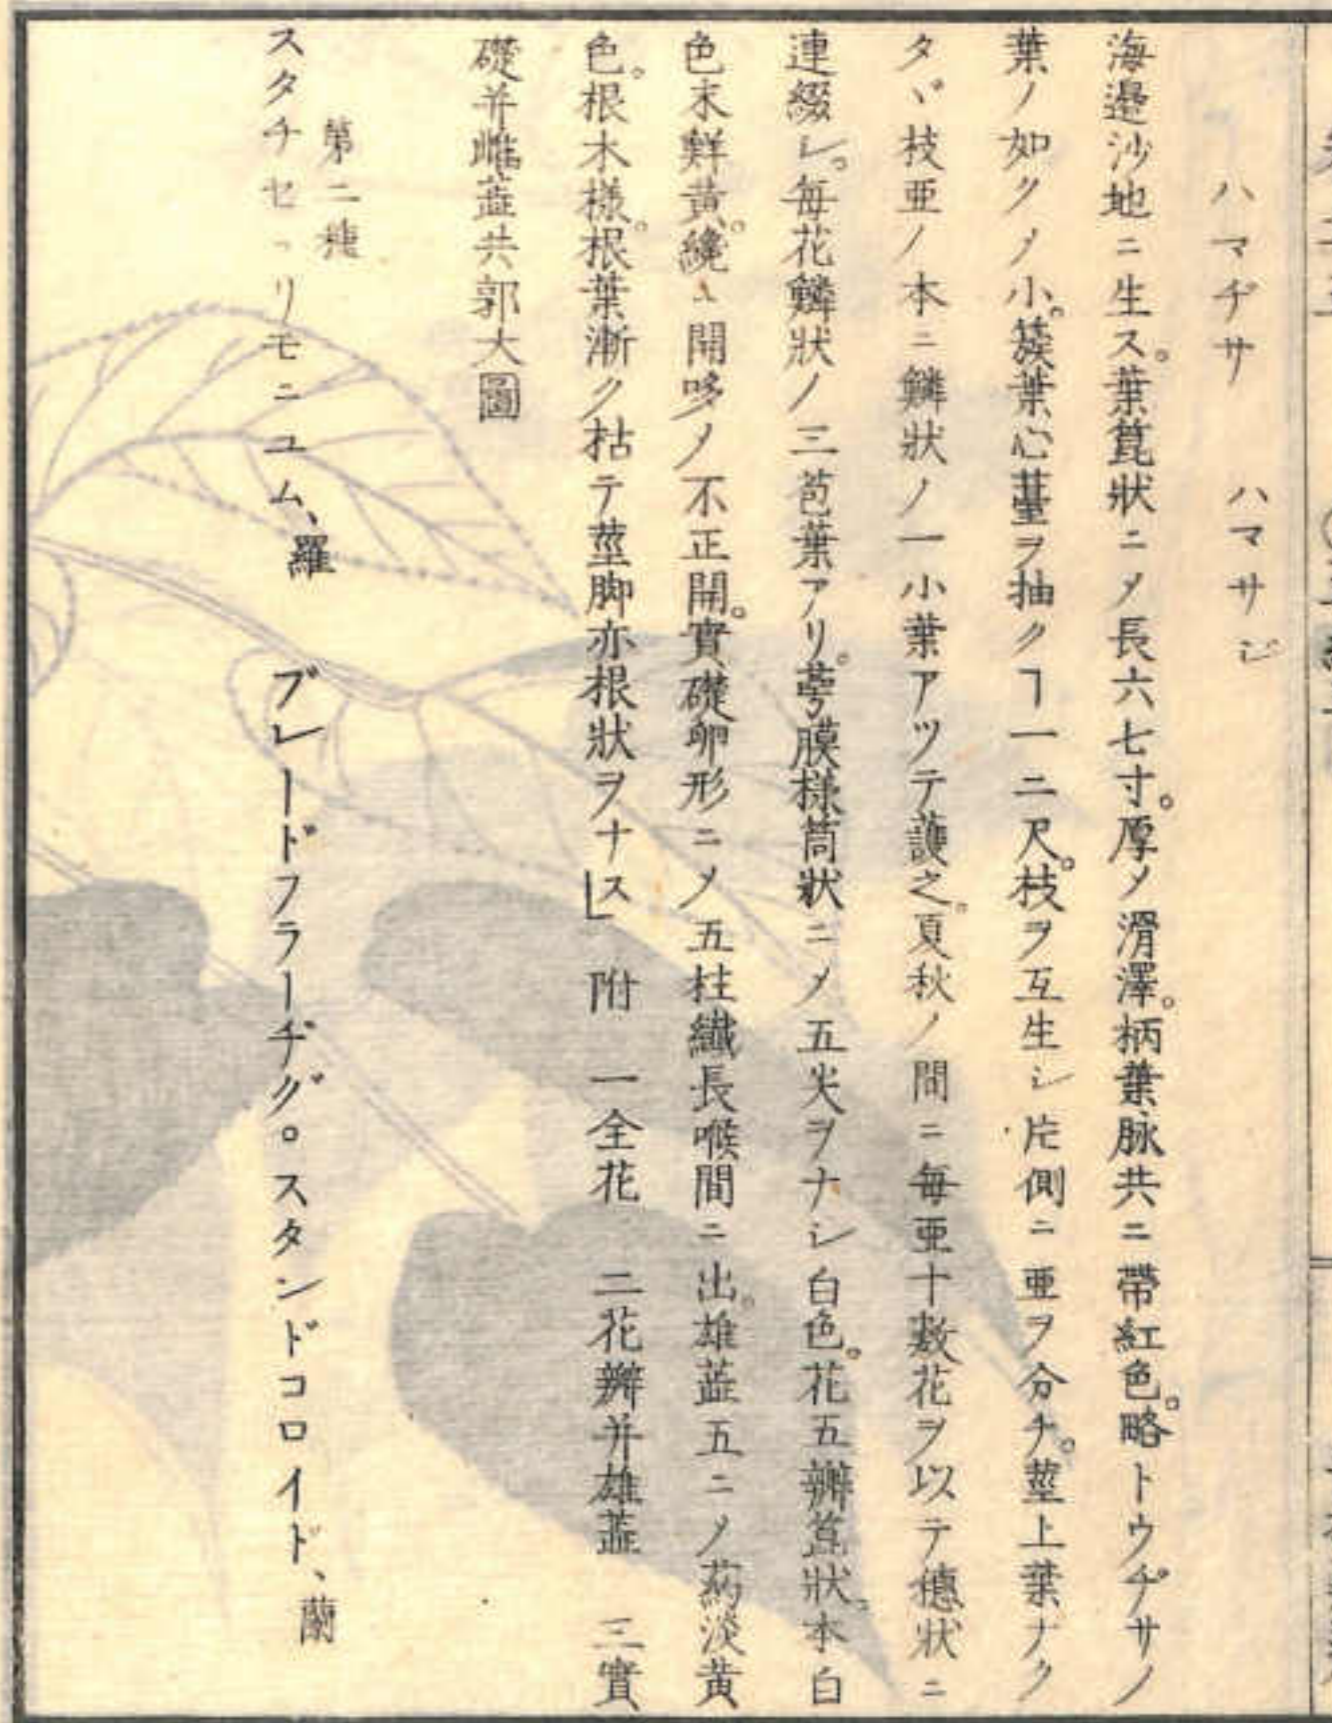 ハマヂサ　ハマサジ
海邉沙地ニ生ス。葉篦狀ニノ長六七寸。厚ノ滑澤。柄葉脉共ニ帶紅色。略トウヂサノ
葉ノ如クノ小。簇葉心薹ヲ抽クヿ一二尺。枝ヲ互生シ片側ニ亜ヲ分チ。莖上葉ナク
タヾ枝亜ノ本ニ鱗狀ノ一小葉アツテ護之。夏秋ノ間ニ每亜十數花ヲ以テ穗狀ニ
連綴シ。每花鱗狀ノ三苞葉アリ。萼膜樣筒狀ニノ五尖ヲナシ白色。花五瓣篦狀。本白
色末鮮黃。纔ニ開哆ノ不正開。實礎卵形ニノ五柱纎長喉間ニ出。雄蕋五ニノ葯淡黃
色。根木樣。根葉漸ク枯テ莖脚亦根狀ヲナス」附　一全花　二花瓣并雄蕋　三實
礎并雌蕋共郭大圖
第二種
スタチセ リモニユム、羅　ブレードブラーヂグ。スタンドコロイド、蘭